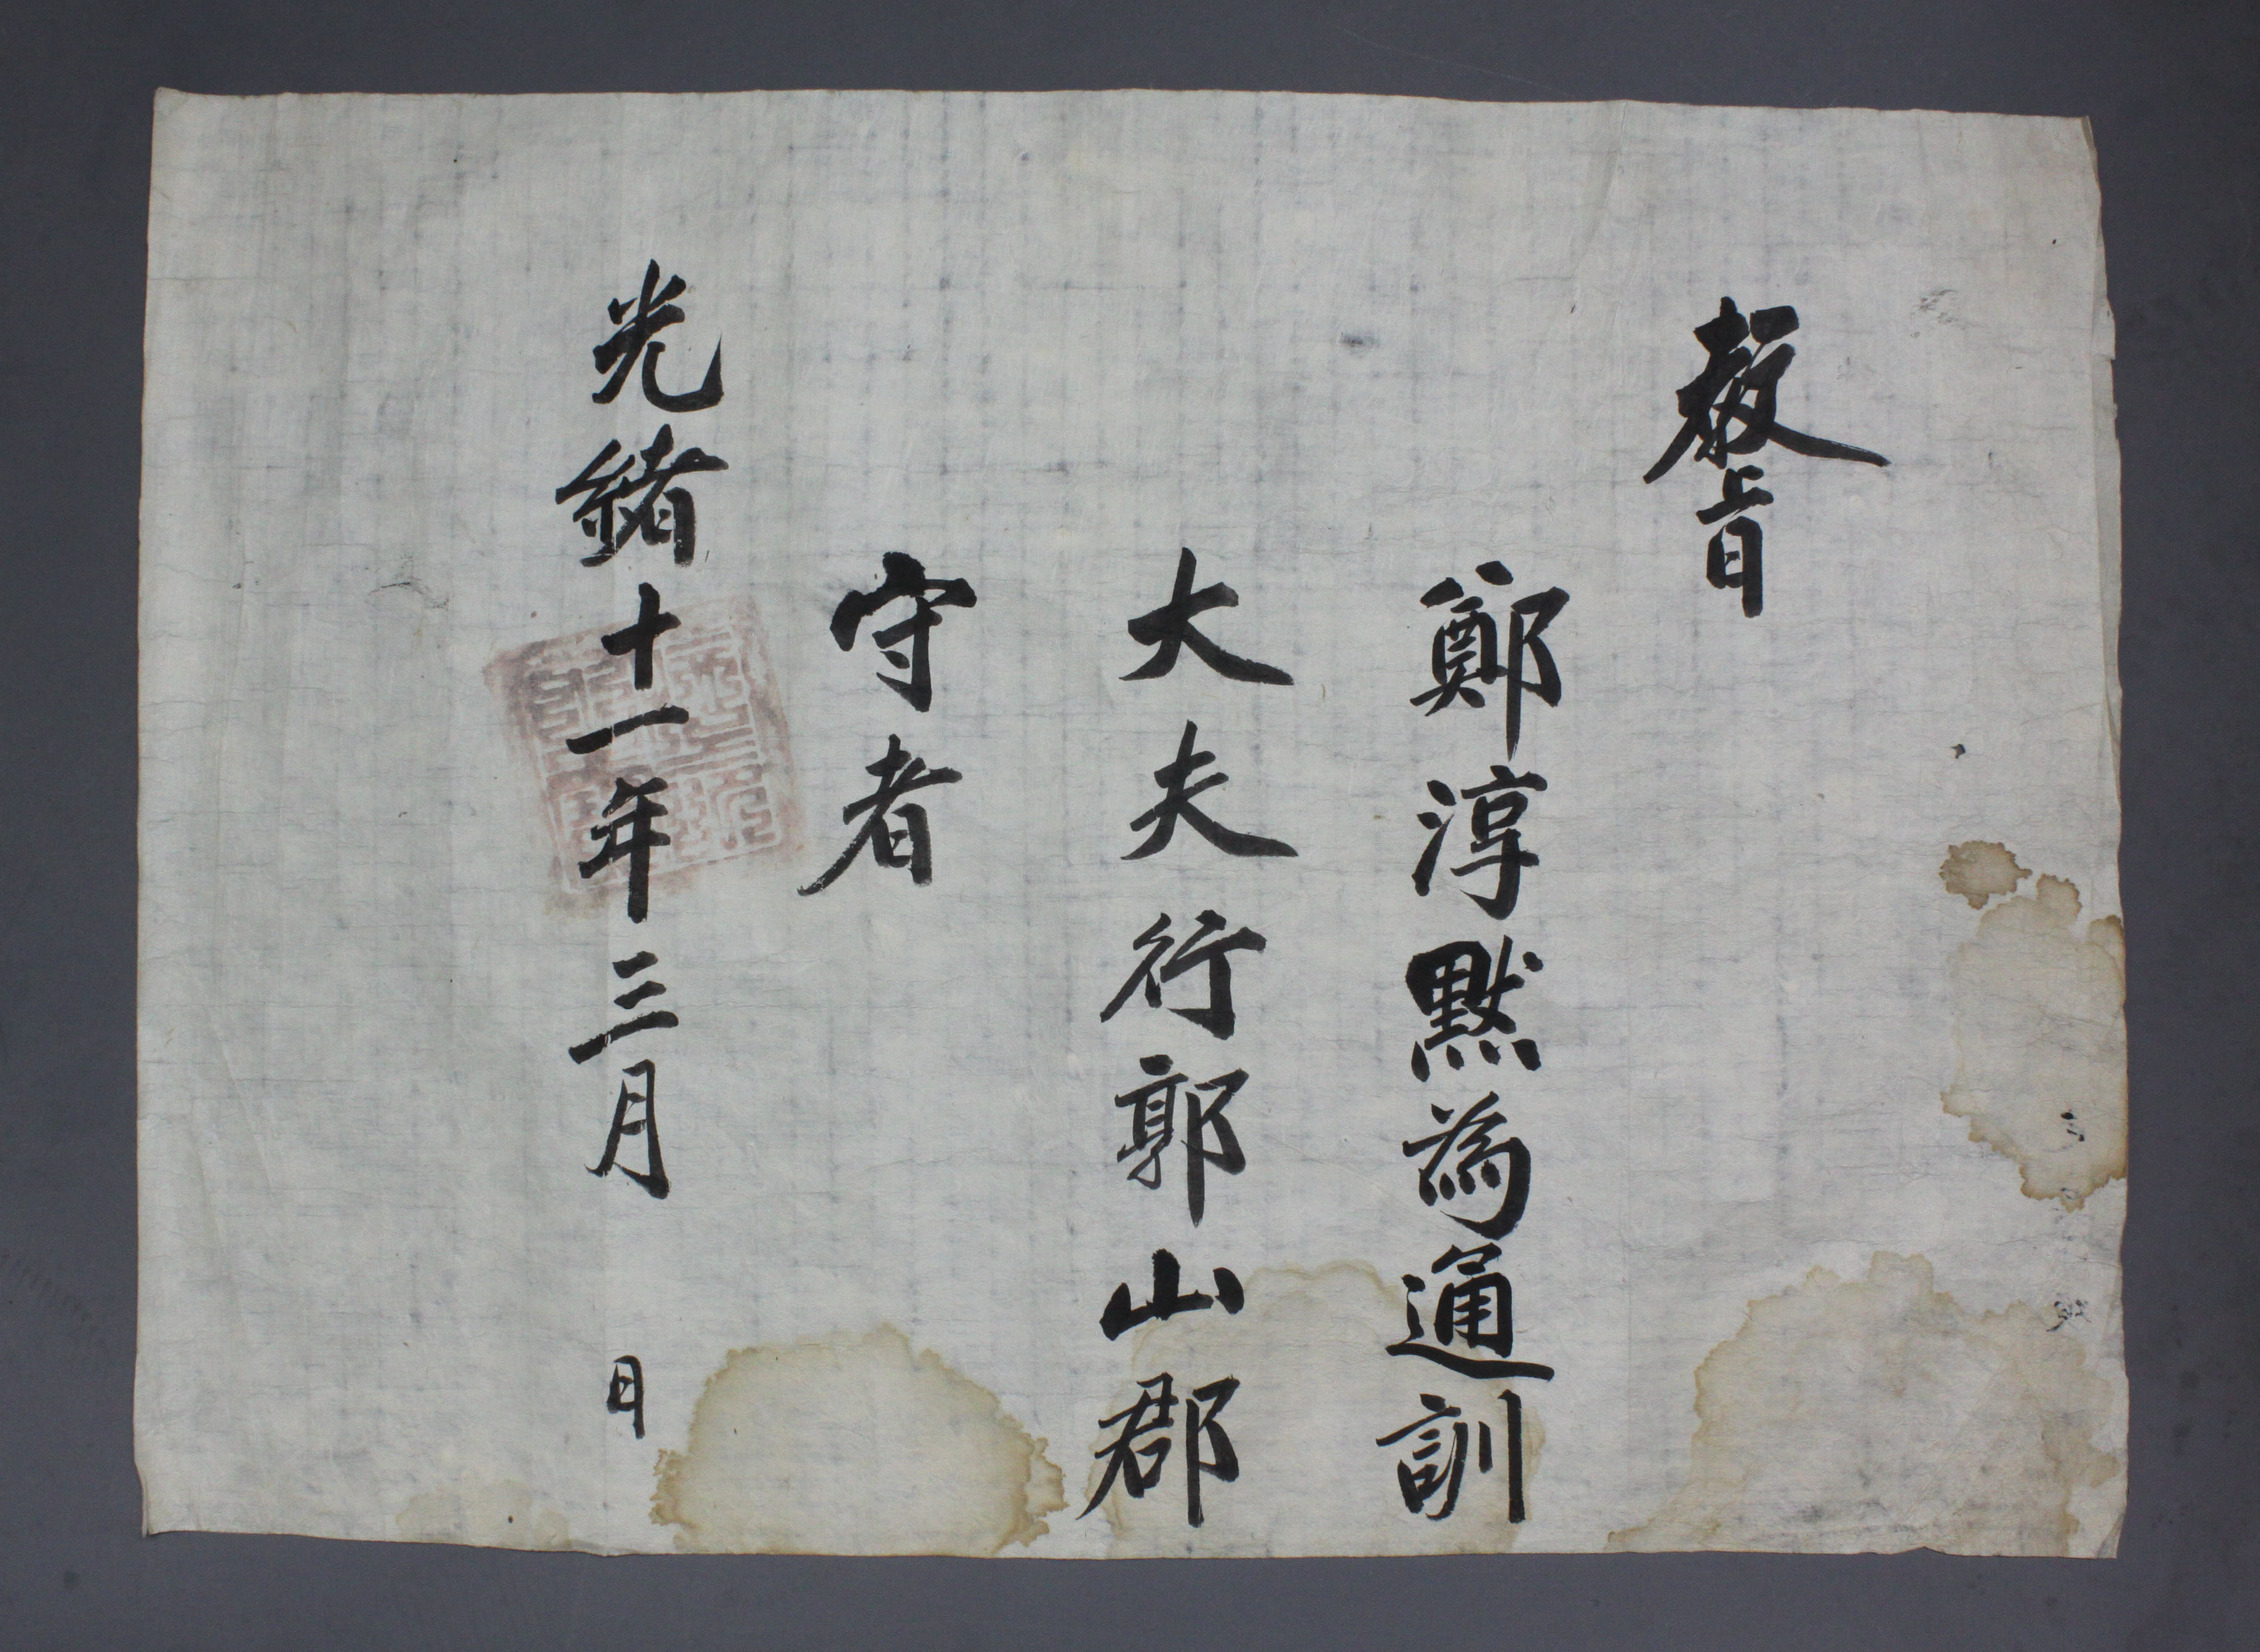 敎旨
鄭淳黙為通訓
大夫行郭山郡
守者
光緖十一年三月　日